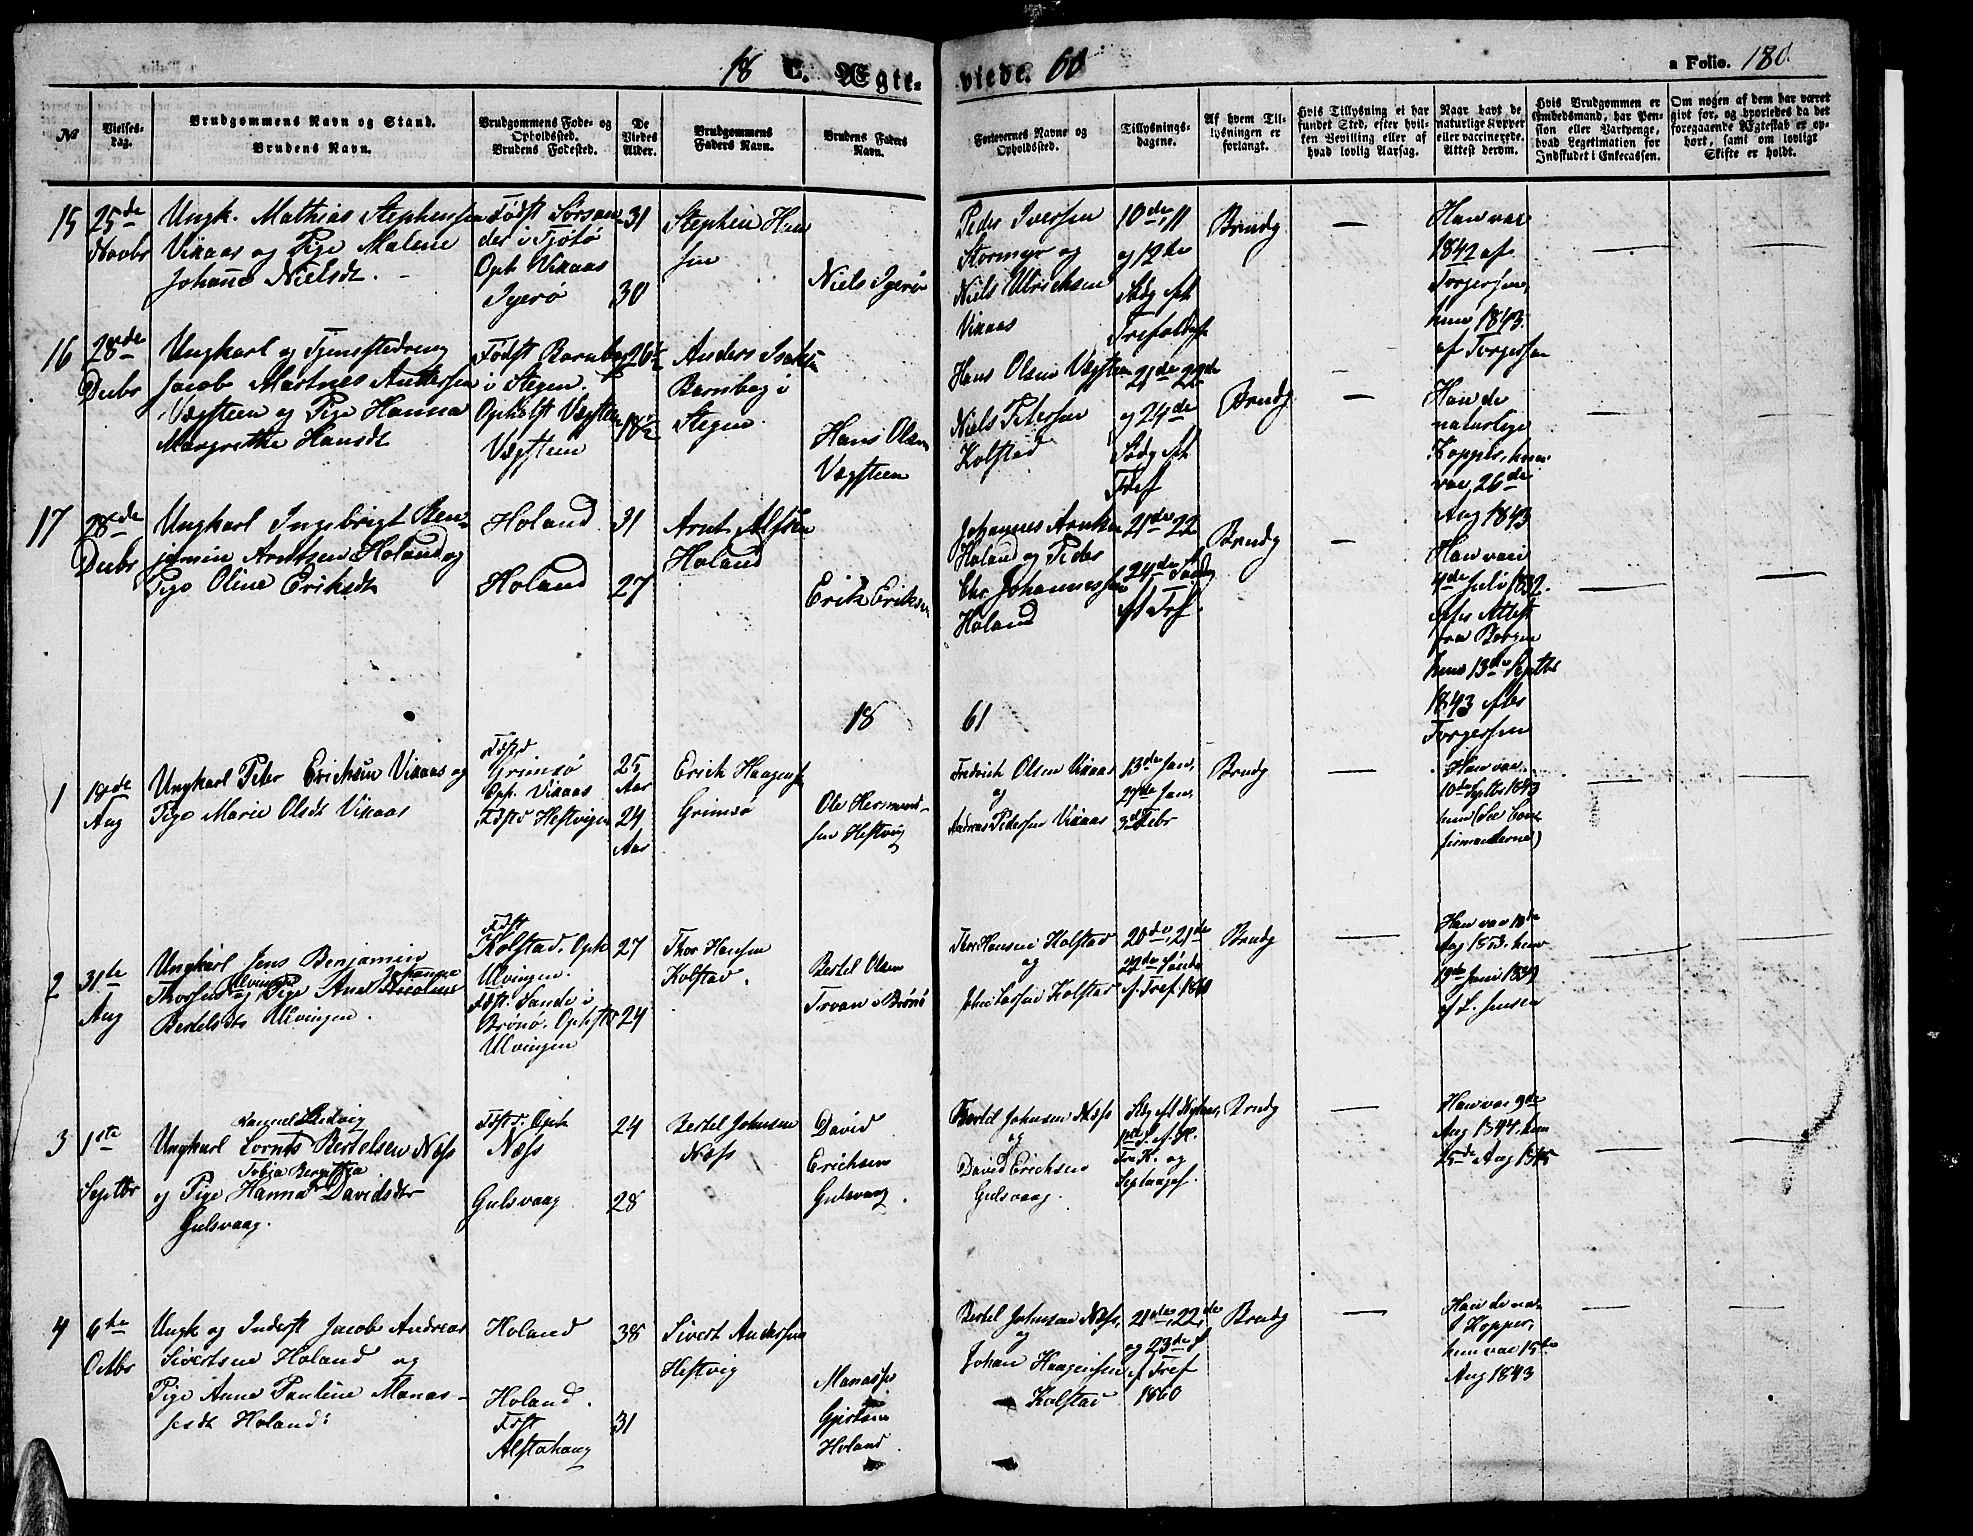 18 C. Ægte-
viede. 60
a Folio. 180
No
Vielses-
dag.
Brudgommens Navn og Stand.
Brudens Navn.
Brudgommens Føde- og
Opholdssted.
Brudens Fødested.
De
Viedes
Alder.
Brudgommens
Faders Navn.
Brudens Faders
Navn.
Forlovernes Navne og
Opholdssted.
Tillysnings-
dagene.
Af hvem Til-
lysningen er
forlangt.
Hvis Tillysning ei har
fundet Sted, efter hvil-
ken Bevilling eller af
hvad lovlig Aarsag.
Naar havt de
naturlige Kopper
eller vaccinerede.
Attest derom.
Hvis Brudgommen er
Embedsmand, har Pen-
sion eller Vartpenge,
hvad Legitimation for
Indskudet i Enkecassen.
Om nogen af dem har været
givt for, og hvorledes da det
foregaaende Ægteskab er op-
hørt, samt om lovligt
Skifte er holdt.
15
25de
Novbr
Ungk. Mathias Stephensen
Vikaas og Pige Malene
Johanne Nielsdt.
Født Sørsan-
der i Tjøtø
Oph Vikaas
Igerø
31
30
Stephen Han
sen
Niels Igerø
Peder Iversen
Stormyr og
Niels Ulrichsen
Vikaas
10de, 11
og 12te
Sødg eft
Trefoldigh
Brudg
—
Han var
1842 af
Torgersen,
hun 1843.
af Torgersen
—
—
16
28de
Decbr
Ungkarl og Tjenestedreng
Jacob Martines Andersen
Vægsteen og Pige Hanna
Margrethe Hansdt
Født Barnbog
i Stegen.
Opholdst Vægsteen
Vægsteen
26½
18½
Anders Isaksen
Barnbog i
Stegen
Hans Olsen
Vægsteen
Hans Olsen Vægsteen
Niels Petersen
Kolstad
21de 22de
og 24de
Sødg eft
Tref
Brudg
—
Han de
naturlige
Kopper, hun
var 26de
Aug 1843
—
—
17
28de
Decbr
Ungkarl Ingebrigt Ben-
jamin Arntsen Holand og
Pige Oline Eriksdt
Holand
Holand
31
27
Arnt Alfsen
Holand
Erik Eriksen
Johannes Arntsen
Holand og Peder
Chr. Johannessen
Holand
21de 22
24de Sødg
ef Tref.
Brudg
—
Han var i
4de Juli 1832.
efter Attest
fra Bergen
hun 13de Septbr
1843 efter
Torgersen
—
—
18 61
1
18de
Aug
Ungkarl Peter Erichsen Vikaas og
Pige Marie Olsdt Vikaas
Født
Grimsø
Oph. Vikaas
Født Heftvigen
25
Aar
24
Aar
Erich Haagensen
Grimsø
Ole Hermand-
sen Heftvig
Fredrich Olsen Vikaas
og
Andreas Pedersen Vikaas
13de Jan,
27de Jan,
3die Febr
Brudg
—
Han var
10de Septbr 1843
hun (See Con-
firmanterne)
2
31te
Aug
Ungkarl Jens Benjamin
Thorsen Ulvingen og Pige Ane Johanne
Bertelsdtr Ulvingen.
Født
Kolstad. Oph
Ulvingen.
Født. Sande i
Brønø. Ophst
Ulvingen
27
24
Thor Hansen
Kolstad.
Bertel Olsen
Torvan i Brønø
Thor Hansen Kolstad
og
John Larsen Kolstad
20de, 21de
22de Sønd
ef. Tref. 1860
Brudg
—
Han var 10de
Aug , hun
19de Juni 1839
af L. Jensen
—
—
3
1ste
Septbr
Ungkarl Lornts Bertelsen Næss
og Pige Hanna Davidsdtr
Gulsvaag.
Født. Oph
Næss
Gulsvaag
24
28
Bertel Johnsen
Næss
David
Erichsen
Gulsvaag.
Bertel Johnsen Næss
og
David Erichsen
Gulsvaag.
Brudg
—
Han var 9de
Aug 1844, hun
25de Aug 1845
—
—
4
6te
Octbr
Ungk og Inderst Jacob Andreas
Sivertsen Holand og
Pige Anne Pauline Manas-
sesdt Holand
Holand
Holand.
Født
Alstahaug
38
31
Sivert Andersen
Heftvig
Manasse
Holand.
Bertel Johnsen Næss,
og
Johan Haagensen
Kolstad
21de, 22de
og 23de S.
ef Tref
1860
Brudg
—
Han de nat.
Kopper,
hun var 15de
Aug 1843
—
—